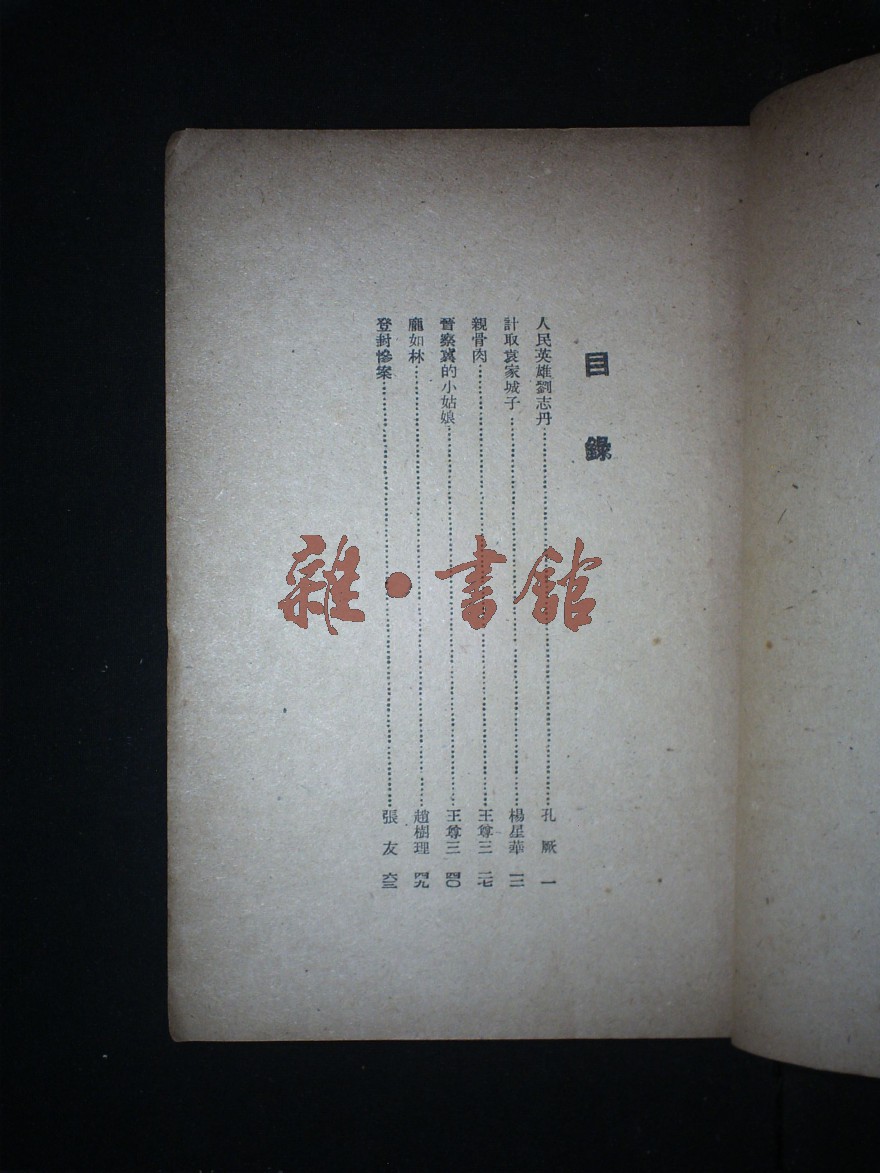 目錄
人民英雄劉志丹……孔厥 一
計取袁家城子……楊星華 一二
親骨肉……王尊三 二七
晉察冀的小姑娘……王尊三 四〇
龐如林……趙樹理 四九
登封慘案……張友 六三
雜·書館